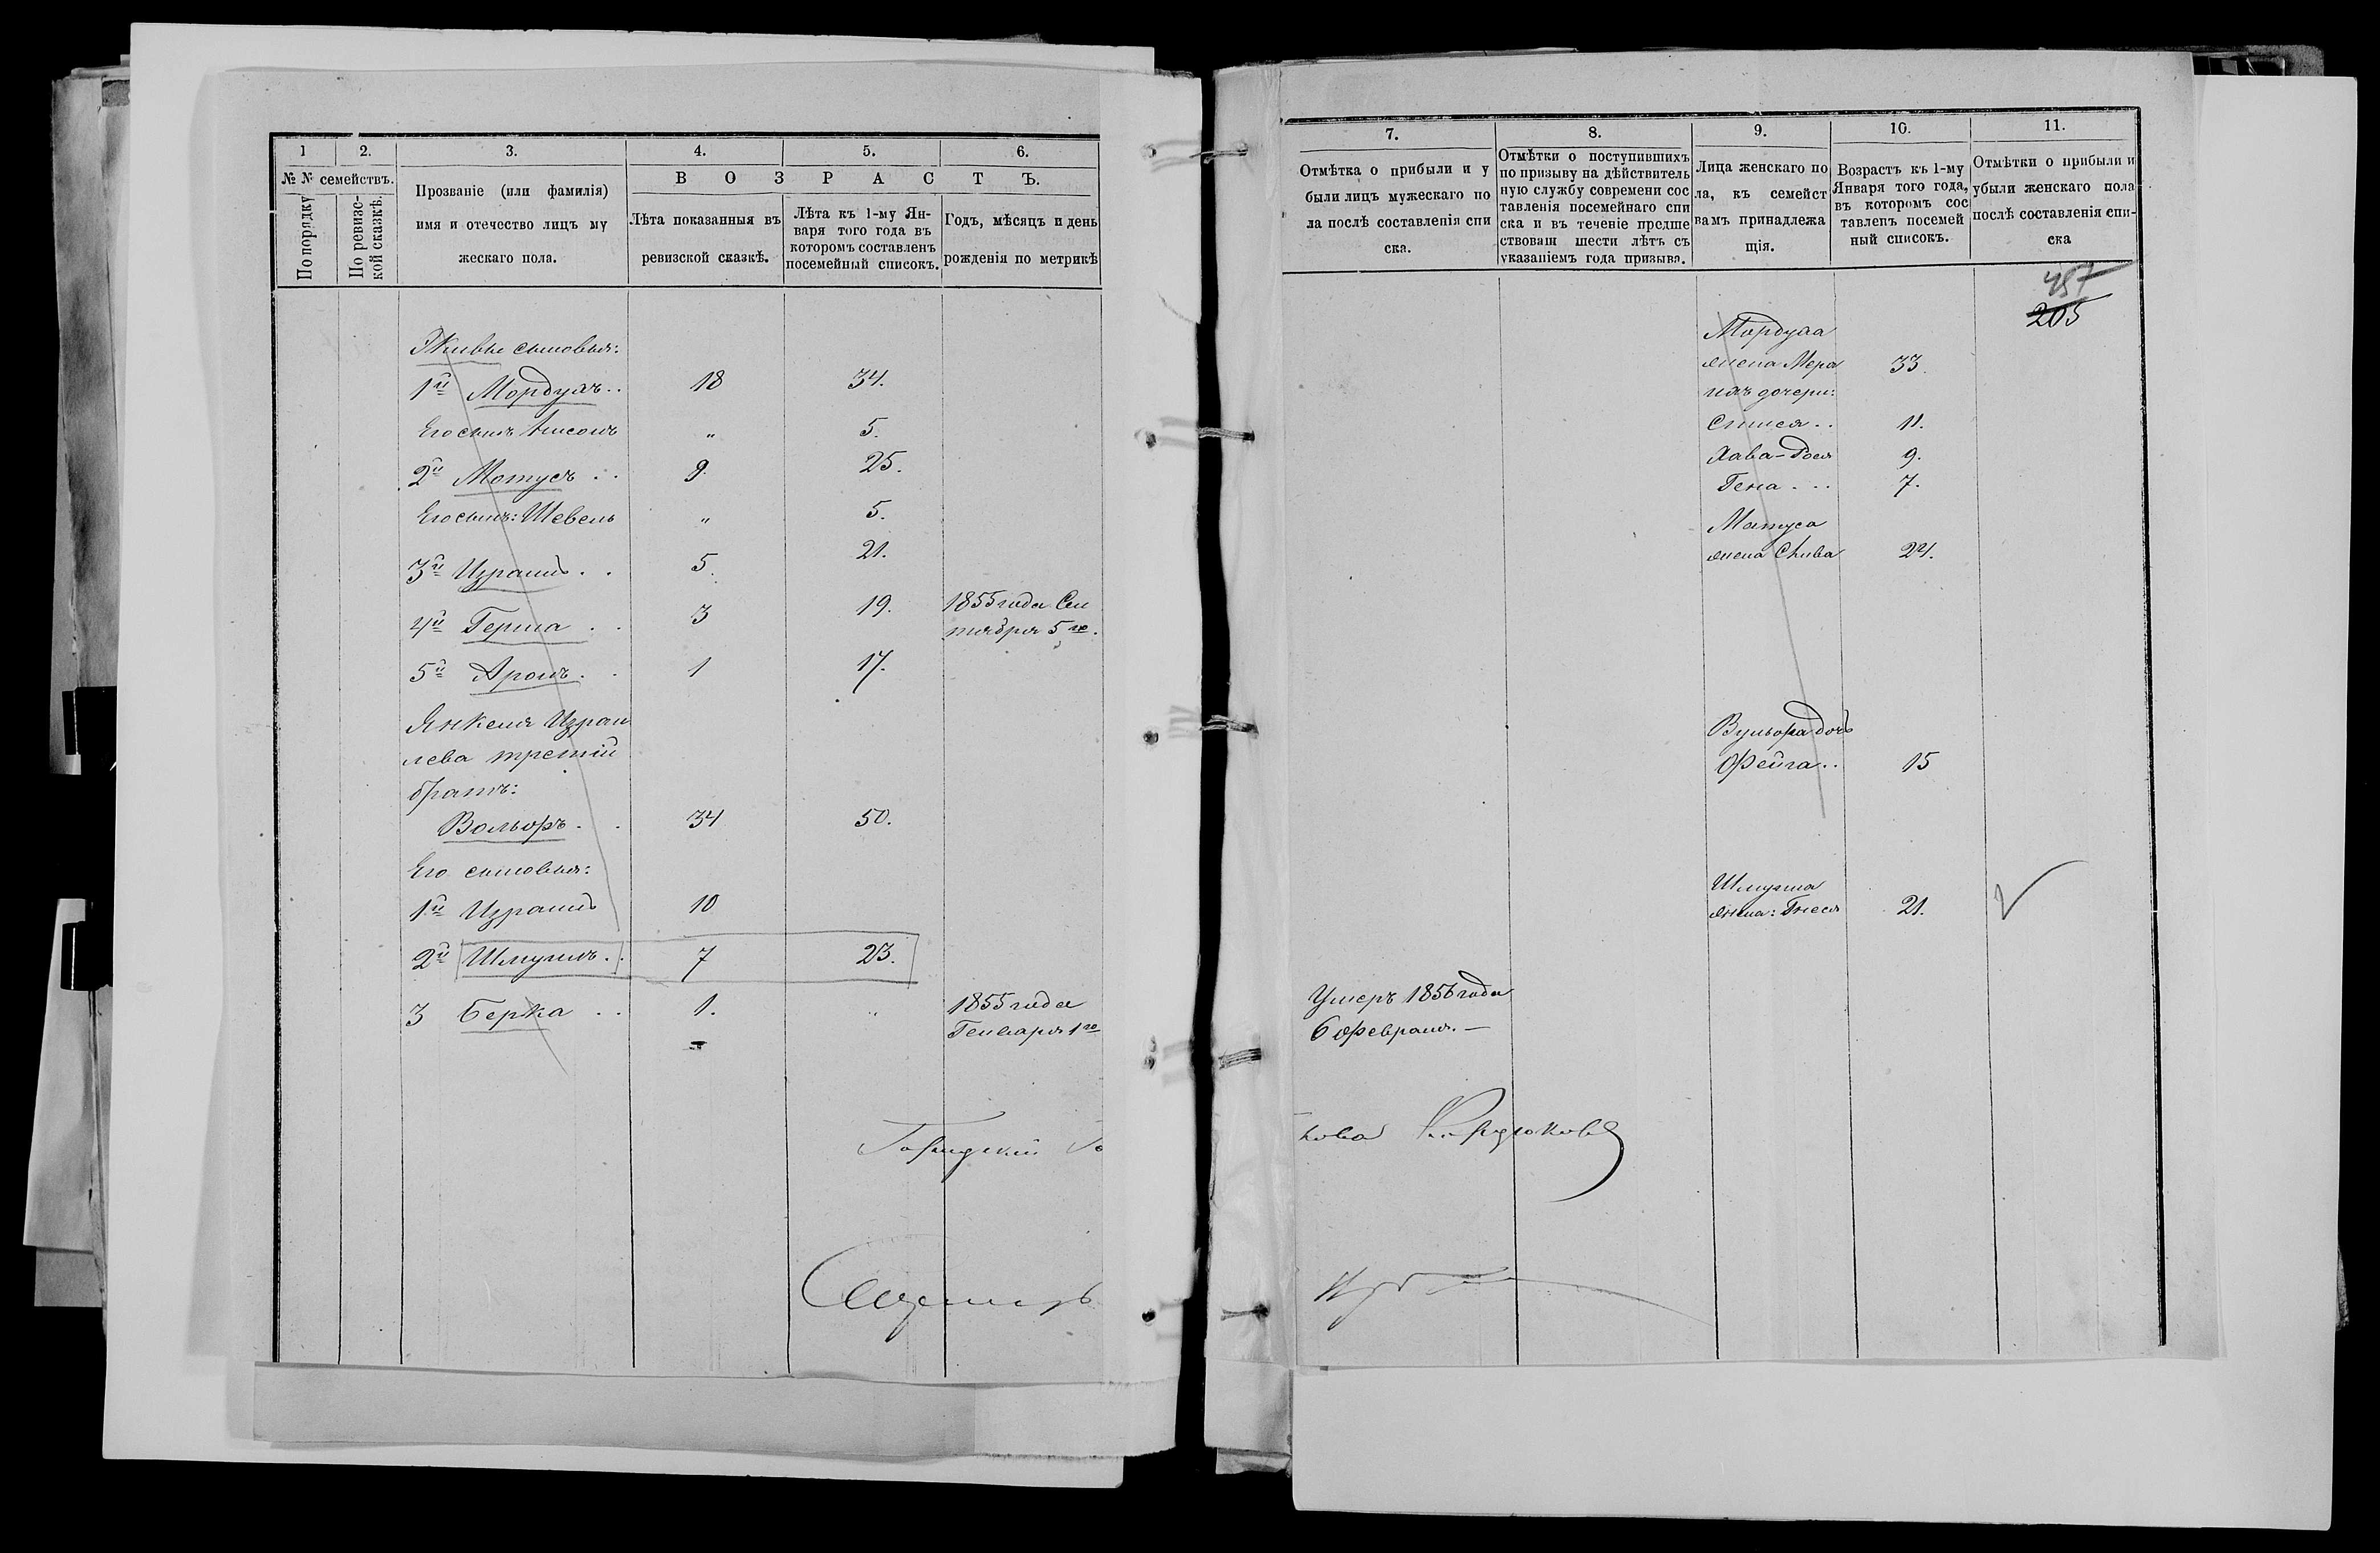 1
2.
3.
4.
5.
6.
№ № семействъ.
По порядку
По ревизс-
кой сказкѣ.
Прозваніе (или фамилія)
имя и отечество лицъ му
жескаго пола.
В О З Р А С Т Ъ.
Лѣта показанныя въ
ревизской сказкѣ.
Лѣта къ 1-му Ян-
варя того года въ
которомъ составленъ
посемейный списокъ.
Годъ, мѣсяцъ и день
рожденія по метрикѣ
сыновья:
1й Мордухъ.. 18 34.
Его сынъ " 5.
2й Мотусъ . . 9. 25.
Его сынъ: Шевель " 5.
3й Израиль . . 5. 21.
4й Герша . . 3 19. 1855 года Сен
тября 5го.
5й Аронъ. . 1 17.
Янкеля Израи
лева третій
братъ:
Вольфъ. . 34 50.
Его сыновья:
1й Израиль 10
2й Шмуиль. . 7 23.
3 Берка . . 1. " 1855 года
Генваря 1го
7.
8.
9.
10.
11.
Отмѣтка о прибыли и у
были лицъ мужескаго по
ла послѣ составленія спи
ска.
Отмѣтки о поступившихъ
по призыву на дѣйствитель
ную службу современи сос
тавленія посемейнаго спи
ска и въ теченіе предше
ствовавш шести лѣтъ съ
указаніемъ года призыва.
Лица женскаго по
ла, къ семейст
вамъ принадлежа
щія.
Возрастъ къ 1-му
Января того года,
въ которомъ сос
тавленъ посемей
ный списокъ.
Отмѣтки о прибыли и
убыли женскаго пола
послѣ составленія спи-
ска
457
205
Мордуха
жена Мера 33.
ихъ дочери:
11.
Хава-Дося 9.
Гена . . . 7.
Матуса
жена Слива 24.
Вульфа дочь
Фейга.. 15
Шмуила
жена: Гнеся 21.
Умеръ 1856 года
6 Февраля. —